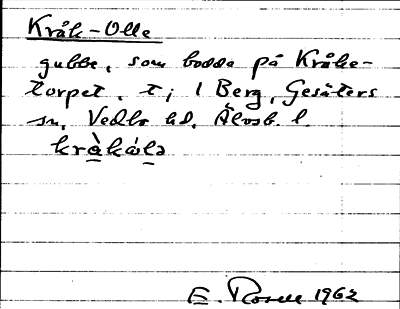 Kråk-Olle
gubbe, som bodde på Kråke-
torpet, t; 1 Berg, Gesäters
sn, Vedbo hd, Älvsb. l.
kràkåla
E. Rosell 1962